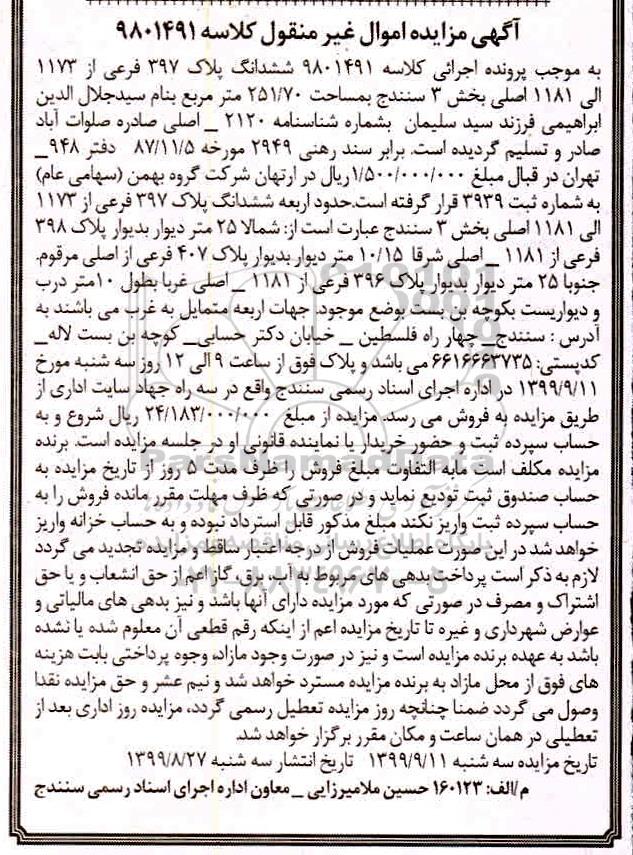 آگهی مزایده اموال غیر منقول کلاسه ۹۸۰۱۴۹۱
به موجب پرونده اجرائی کلاسه ۹۸۰۱۴۹۱ ششدانگ پلاک ۳۹۷ فرعی از ۱۱۷۳
الی ۱۱۸۱ اصلی بخش ۳ سنندج بمساحت ۲۵۱/۷۰ متر مربع بنام سیدجلال الدین
ابراهیمی فرزند سید سلیمان بشماره شناسنامه ۲۱۲۰ _ اصلی صادره صلوات آباد
صادر و تسلیم گردیده است. برابر سند رهنی ۲۹۴۹ مورخه ۸۷/۱۱/۵ دفتر ۹۴۸_
تهران در قبال مبلغ ۱/۵۰۰/۰۰۰/۰۰۰ریال در ارتهان شرکت گروه بهمن (سهامی عام)
به شماره ثبت ۳۹۳۹ قرار گرفته است.حدود اربعه ششدانگ پلاک ۳۹۷ فرعی از ۱۱۷۳
الی ۱۱۸۱ اصلی بخش ۳ سنندج عبارت است از: شمالا ۲۵ متر دیوار بدیوار پلاک ۳۹۸
فرعی از ۱۱۸۱ _ اصلی شرقا ۱۰/۱۵ متر دیوار بدیوار پلاک ۴۰۷ فرعی از اصلی مرقوم.
جنوبا ۲۵ متر دیوار بدیوار پلاک ۳۹۶ فرعی از ۱۱۸۱ _ اصلی غربا بطول ۱۰متر درب
و دیواریست بکوچه بن بست بوضع موجود. جهات اربعه متمایل به غرب می باشند به
آدرس : سنندج_ چهار راه فلسطین _ خیابان دکتر حسابی_ کوچه بن بست لاله_
کدپستی: ۶۶۱۶۶۶۳۷۳۵ می باشد و پلاک فوق از ساعت ۹ الی ۱۲ روز سه شنبه مورخ
۱۳۹۹/۹/۱۱ در اداره اجرای اسناد رسمی سنندج واقع در سه راه جهاد سایت اداری از
طریق مزایده به فروش می رسد. مزایده از مبلغ ۲۴/۱۸۳/۰۰۰/۰۰۰ ریال شروع و به
حساب سپرده ثبت و حضور خریدار یا نماینده قانونی او در جلسه مزایده است. برنده
مزایده مکلف است مابه التفاوت مبلغ فروش را ظرف مدت ۵ روز از تاریخ مزایده به
حساب صندوق ثبت تودیع نماید و در صورتی که ظرف مهلت مقرر مانده فروش را به
حساب سپرده ثبت واریز نکند مبلغ مذکور قابل استرداد نبوده و به حساب خزانه واریز
خواهد شد در این صورت عملیات فروش از درجه اعتبار ساقط و مزایده تجدید می گردد
لازم به ذکر است پرداخت بدهی های مربوط به آب، برق، گاز اعم از حق انشعاب و یا حق
اشتراک و مصرف در صورتی که مورد مزایده دارای آنها باشد و نیز بدهی های مالیاتی و
عوارض شهرداری و غیره تا تاریخ مزایده اعم از اینکه رقم قطعی آن معلوم شده یا نشده
باشد به عهده برنده مزایده است و نیز در صورت وجود مازاد، وجوه پرداختی بابت هزینه
های فوق از محل مازاد به برنده مزایده مسترد خواهد شد و نیم عشر و حق مزایده نقدا
وصول می گردد ضمنا چنانچه روز مزایده تعطیل رسمی گردد، مزایده روز اداری بعد از
تعطیلی در همان ساعت و مکان مقرر برگزار خواهد شد.
تاریخ مزایده سه شنبه ۱۳۹۹/۹/۱۱ تاریخ انتشار سه شنبه ۱۳۹۹/۸/۲۷
م/الف: ۱۶۰۱۲۳ حسین ملامیرزایی _ معاون اداره اجرای اسناد رسمی سنندج